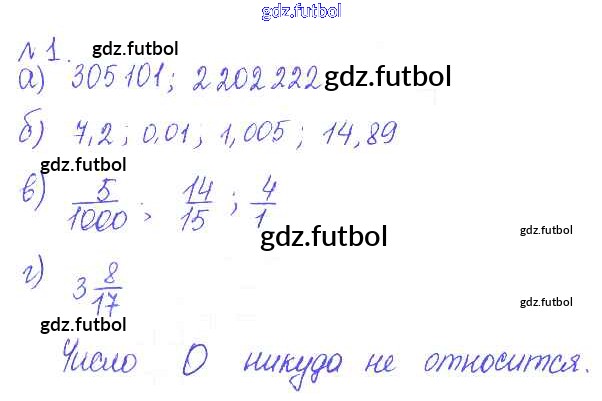 gdz.futbol
№ 1. gdz.futbol
а) 305 101; 2 202 222 gdz.futbol
б) 7,2; 0,01; 1,005; 14,89
gdz.futbol
в) 5/1000; 14/15; 4/1
gdz.futbol gdz.futbol
г) 3 8/17
gdz.futbol gdz.futbol
Число 0 никуда не относится.